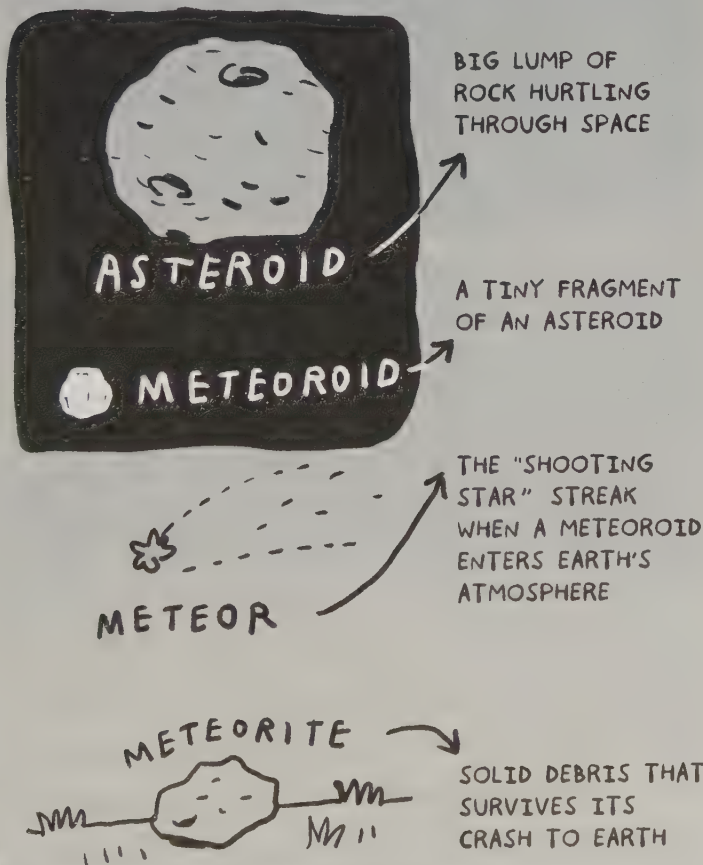 BIG LUMP OF
ROCK HURTLING
THROUGH SPACE
ASTEROID
A TINY FRAGMENT
OF AN ASTEROID
METEOROID
THE "SHOOTING
STAR" STREAK
WHEN A METEOROID
ENTERS EARTH'S
ATMOSPHERE
METEOR
METEORITE
SOLID DEBRIS THAT
SURVIVES ITS
CRASH TO EARTH